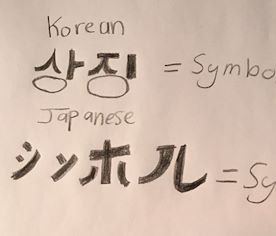 Korean
상징 = Symbo
Japanese
シンホル = Sy